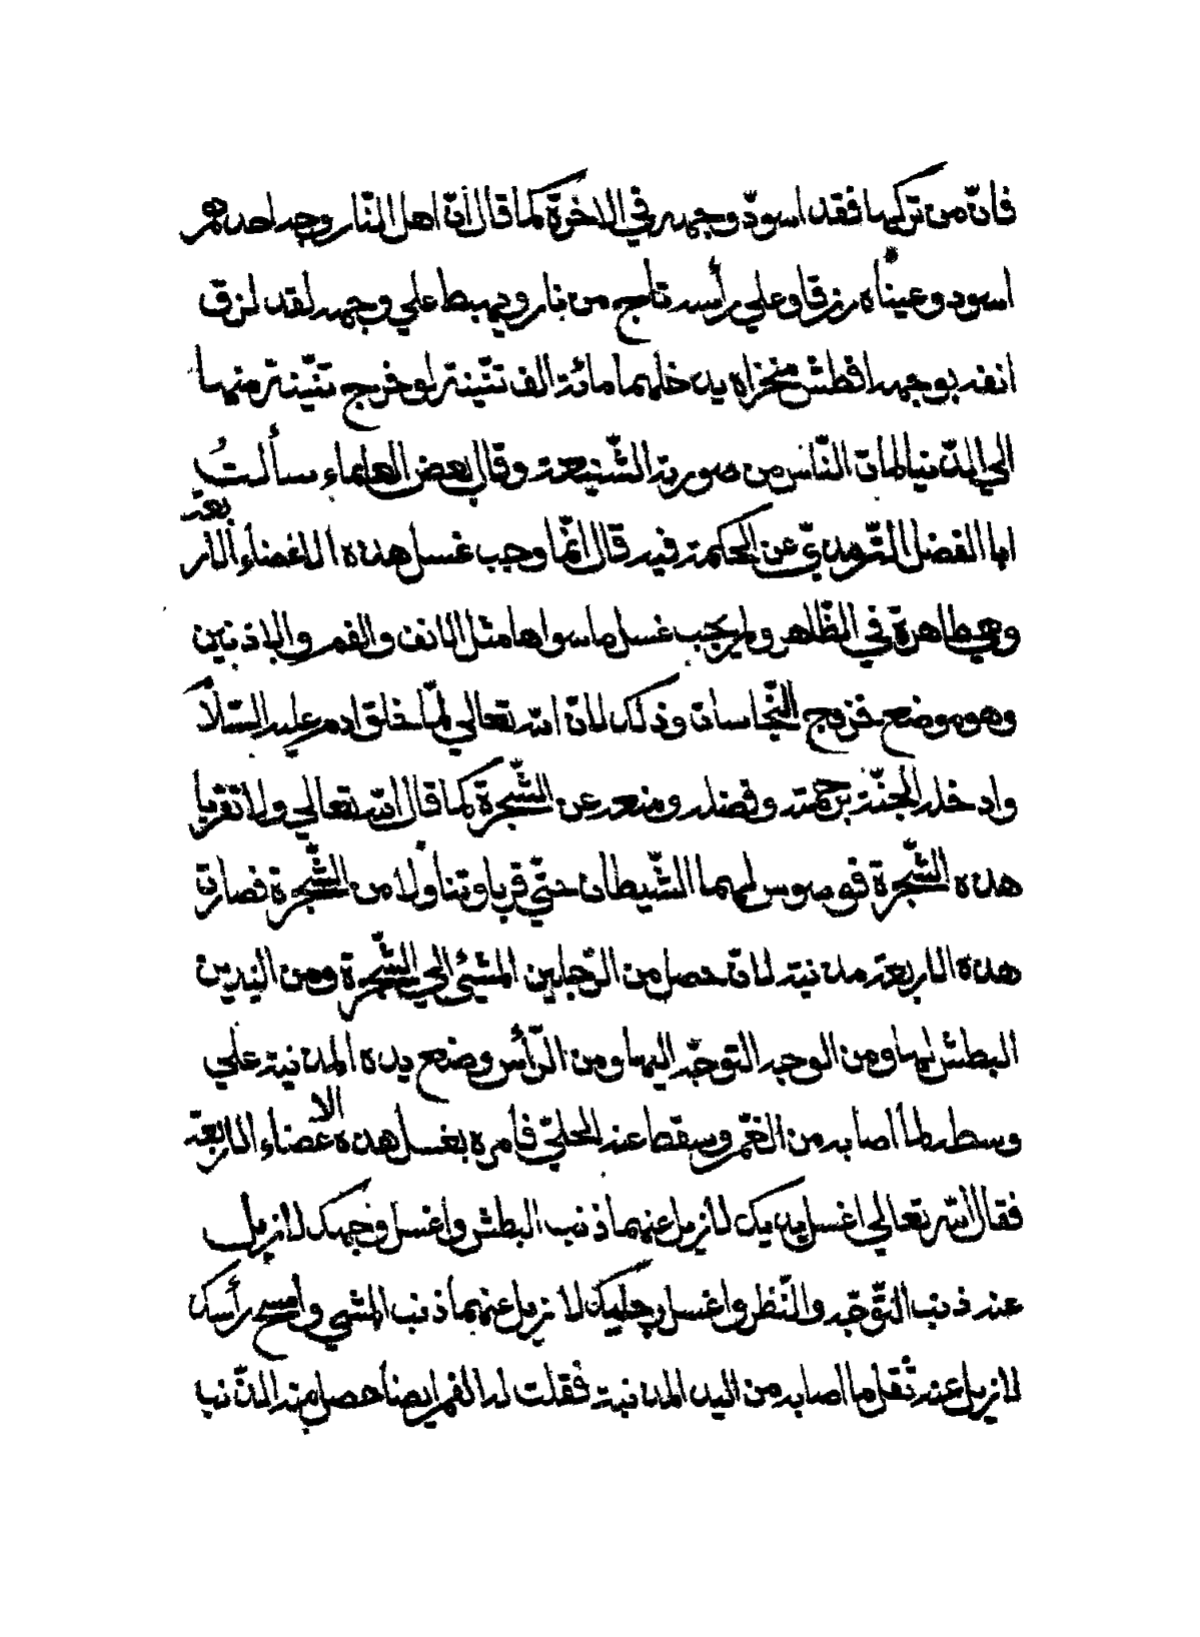 فانّ من تركها فقد اسودّ وجهه في الاخرة كما قال انّ اهل النّار وجه احدهم
اسود وعيناه زرقا وعلي رأسه تاج من نار ويهبط علي وجهه لقد لزق
انفه بوجهه افطش منخزاه يدخلهما مائة الف تنّينة لو خرج تنّينة منها
الي الدّنيا لمات النّاس من صورته الشّنيعة وقال بعض العلماء سألتُ
ابا الفضل التّرمذيّ عن الحكمة فيه قال انّما وجب غسل هذه الاعضاء الاربعة
وهي طاهرة في الظّاهر ولم يجب غسل ما سواها مثل الانف والفم والاذنين
وهو موضع خروج النّجاسات وذلك لانّ الله تعالي لمّا خلق ادم عليه السّلام
وادخله الجنّة برحمته وفضله ومنعه عن الشّجرة كما قال الله تعالي ولا تقربا
هذه الشّجرة فوسوس لهما الشّيطان حتّي قربا وتناولا من الشّجرة فصارت
هذه الاربعة مذنبة لانّ حصل من الرّجلين المشي الي الشّجرة ومن اليدين
البطش لها ومن الوجه التوجّه اليها ومن الرّأس وضع يده المذنبة علي
وسطه لما اصابه من الغمّ وسقطا عنه الحليّ فأمره بغسل هذه الاعضاء الاربعة
فقال الله تعالي اغسل يديك لازيل عنهما ذنب البطش واغسل وجهك لازيل
عنه ذنب التّوجّه والنّظر واغسل رجليك لا زيل عنهما ذنب المشي وامسح رأسك
لازيل عنه ثقل ما اصابه من اليد المذنبة فقلت له الفم ايضا حصل منه الذّنب